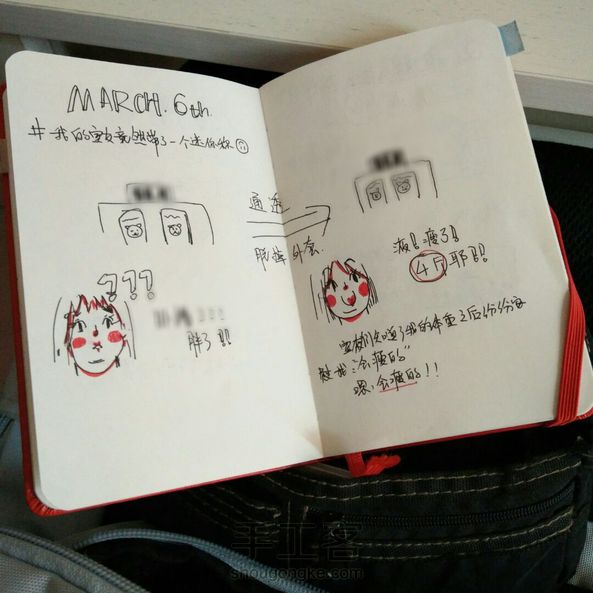 MARCH. 6th.
#我的室友竟然带了一个迷你称
???
胖了!!
通透
脱掉外套
液!瘦了!!
4斤耶!!
室友们知道了我的体重之后纷纷安
慰我:会瘦的"
嗯,会瘦的!!
手工客
shougongke.com